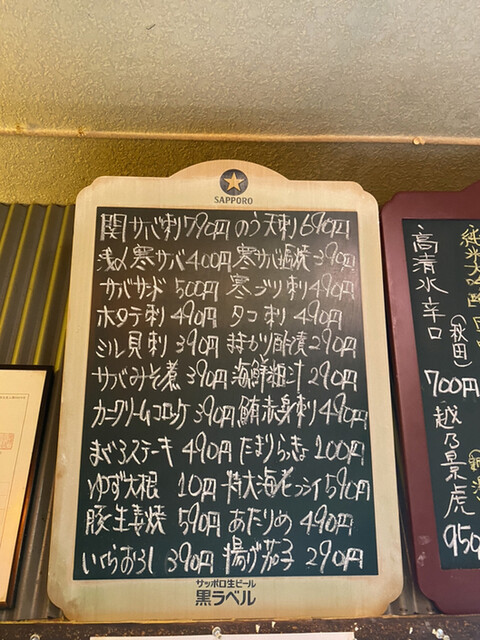 SAPPORO
関サバ刺790円 のう天刺690円
浅〆寒サバ400円 寒サバ塩焼390円
サバサンド 500円 寒ブリ刺490円
ホタテ刺 490円 タコ刺 490円
ミル貝刺 390円 酢漬290円
サバみそ煮 390円 海鮮粕汁 290円
カニクリームコロッケ390円 鮪赤身刺490円
まぐろステーキ 490円 たまりらっきょ200円
ゆず大根 10円 特大海老フライ590円
豚生姜焼 590円 あたりめ 490円
いくらおろし390円 揚げ茄子 290円
サッポロ生ビール
黒ラベル
高清水辛口
(秋田)
700円
越乃景虎
950